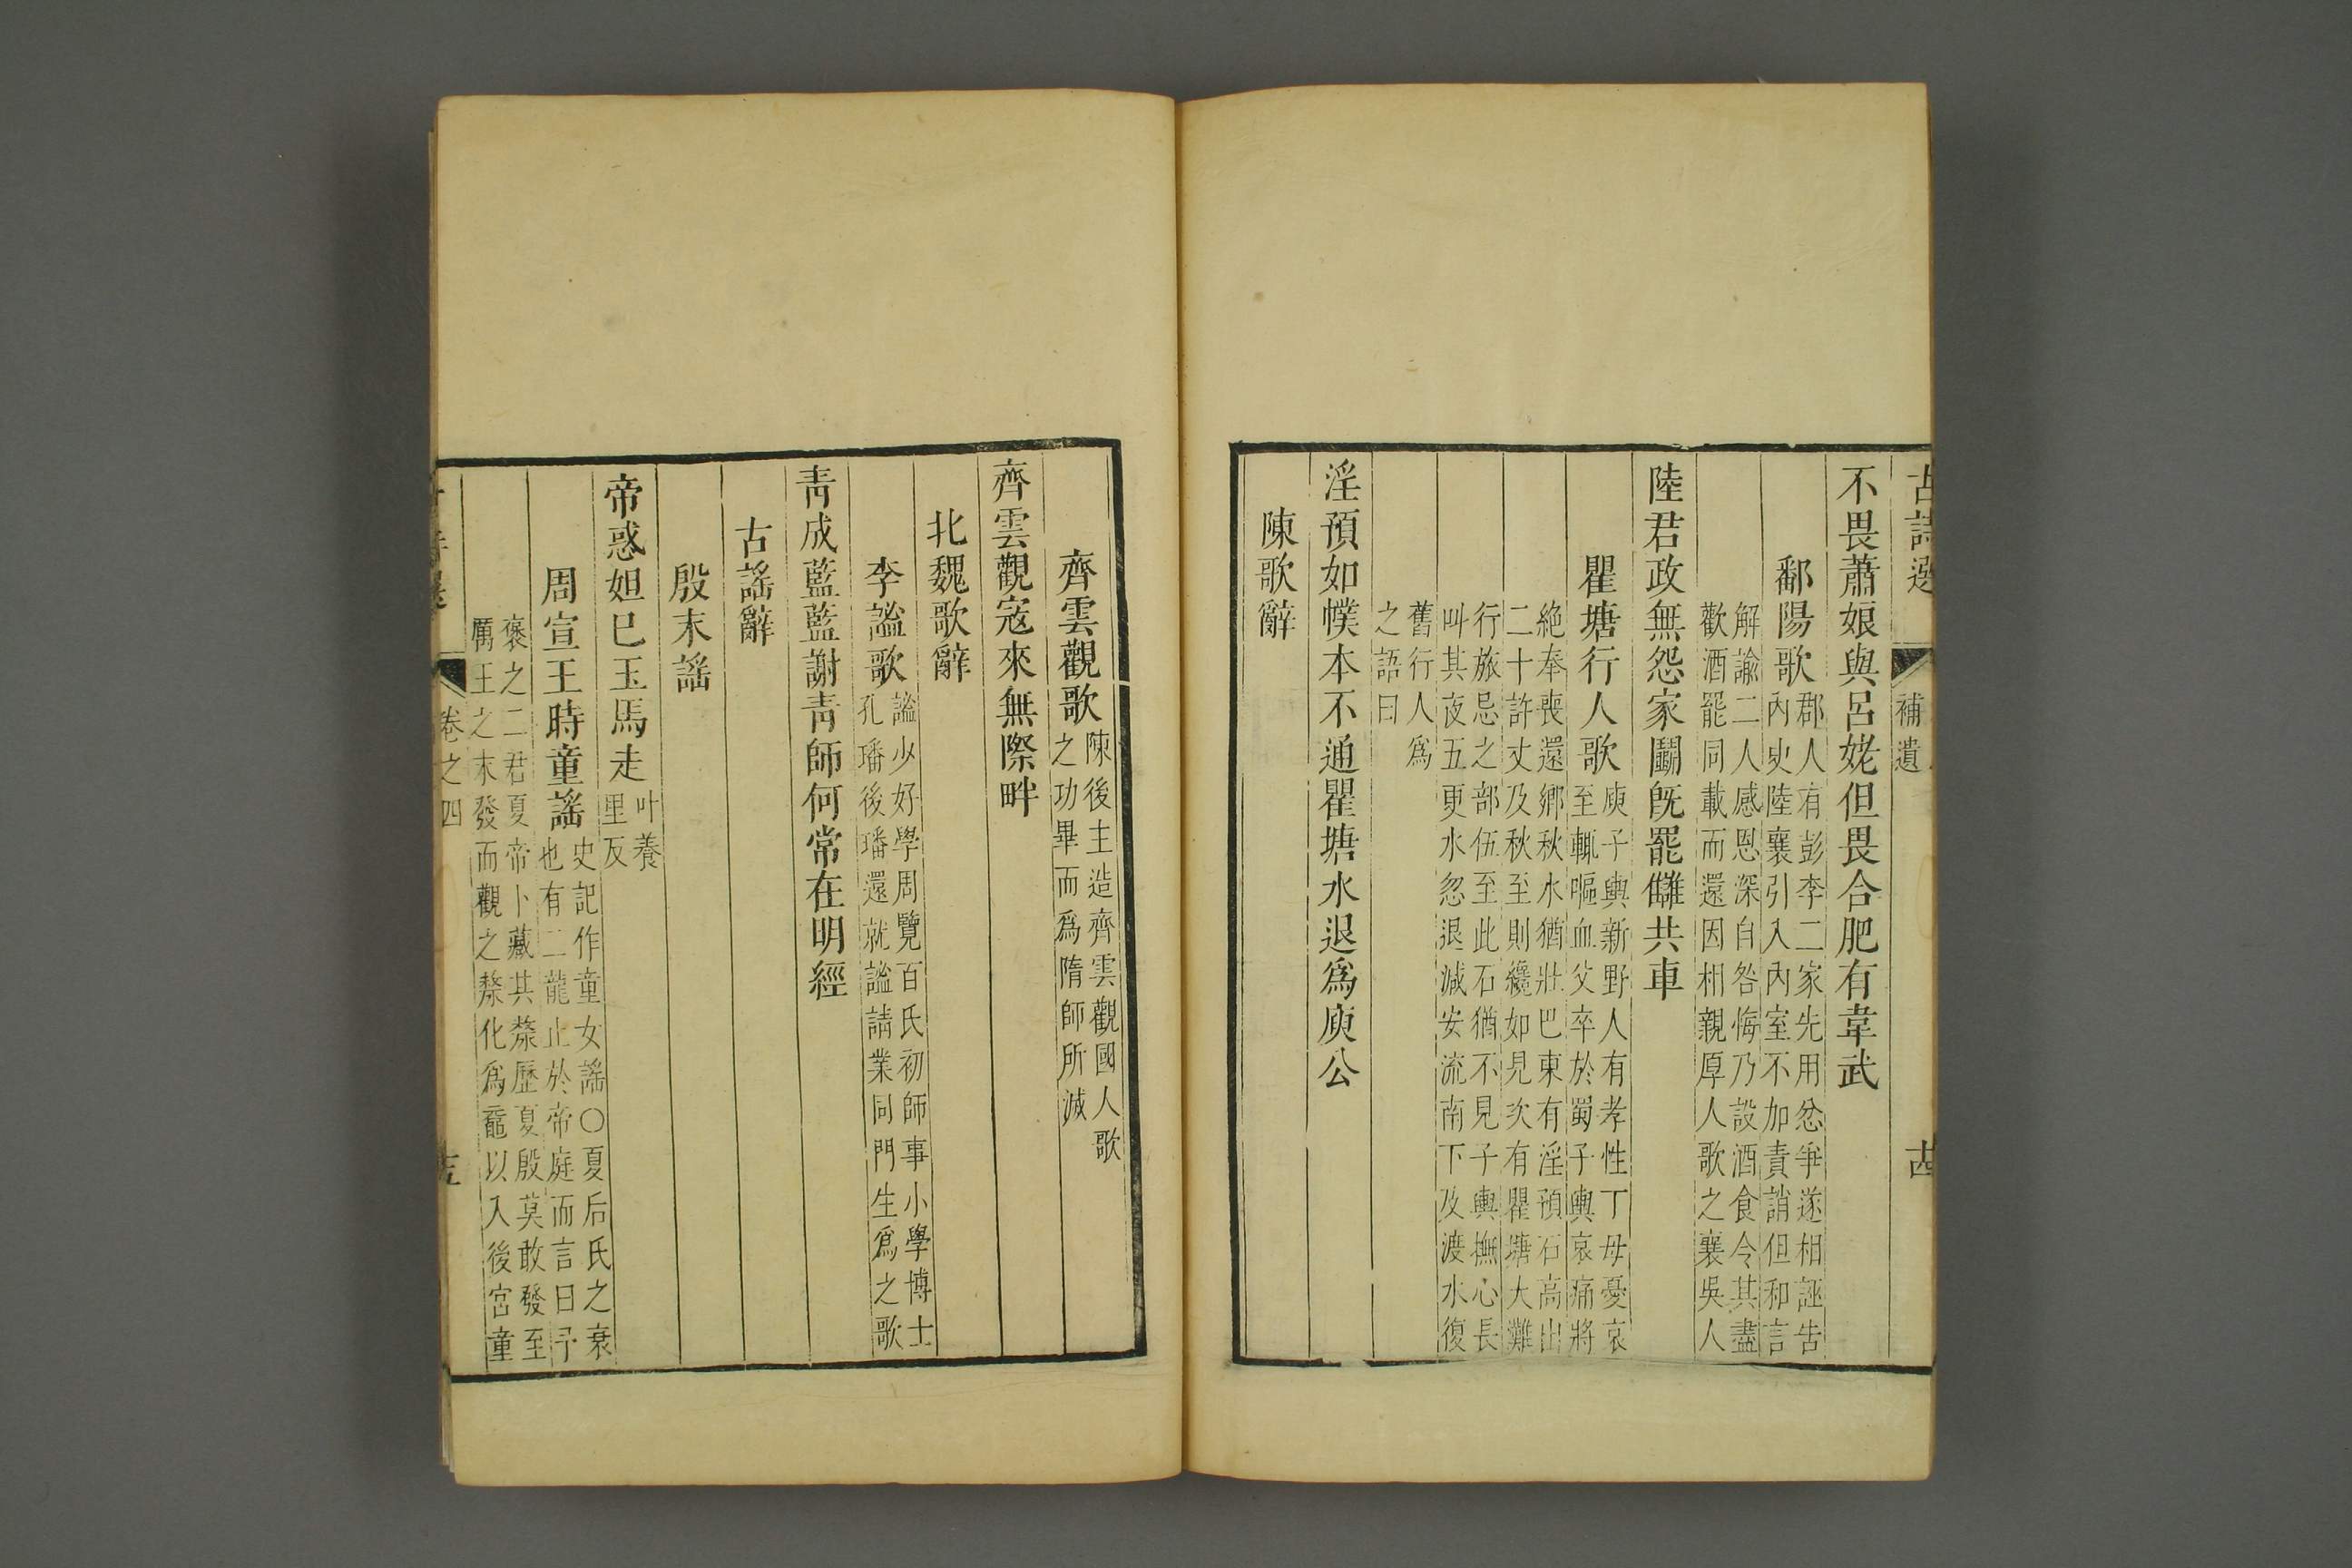 古詩選 補遺 古
不畏蕭娘與呂姥但畏合肥有韋武
鄱陽歌
郡人有彭李二家先用忿爭遂相誣告
內史陸襄引入內室不加責誚但和言
解諭二人感恩深自咎悔乃設酒食令其盡
歡酒罷同載而還因相親厚人歌之襄吳人
陸君政無怨家鬬旣罷讎共車
瞿塘行人歌
庾子輿新野人有孝性丁母憂哀
至輒嘔血父卒於蜀子輿哀痛將
絶奉喪還鄉秋水猶壯巴東有淫預石高出
二十許丈及秋至則纔如見次有瞿塘大灘
行旅忌之部伍至此石猶不見子輿撫心長
叫其夜五更水忽退減安流南下及渡水復
舊行人爲
之語曰
淫預如幞本不通瞿塘水退爲庾公
陳歌辭
齊雲觀歌
陳後主造齊雲觀國人歌
之功畢而爲隋師所滅
齊雲觀寇來無際畔
北魏歌辭
李謐歌
謐少好學周覽百氏初師事小學博士
孔璠後璠還就謐請業同門生爲之歌
靑成藍藍謝靑師何常在明經
古謠辭
殷末謠
帝惑妲已玉馬走
叶養
里反
周宣王時童謠
史記作童女謠○夏后氏之衰
也有二龍止於帝庭而言曰予
褒之二君夏帝卜藏其漦歷夏殷莫敢發至
厲王之末發而觀之漦化爲黿以入後宮童
卷之四